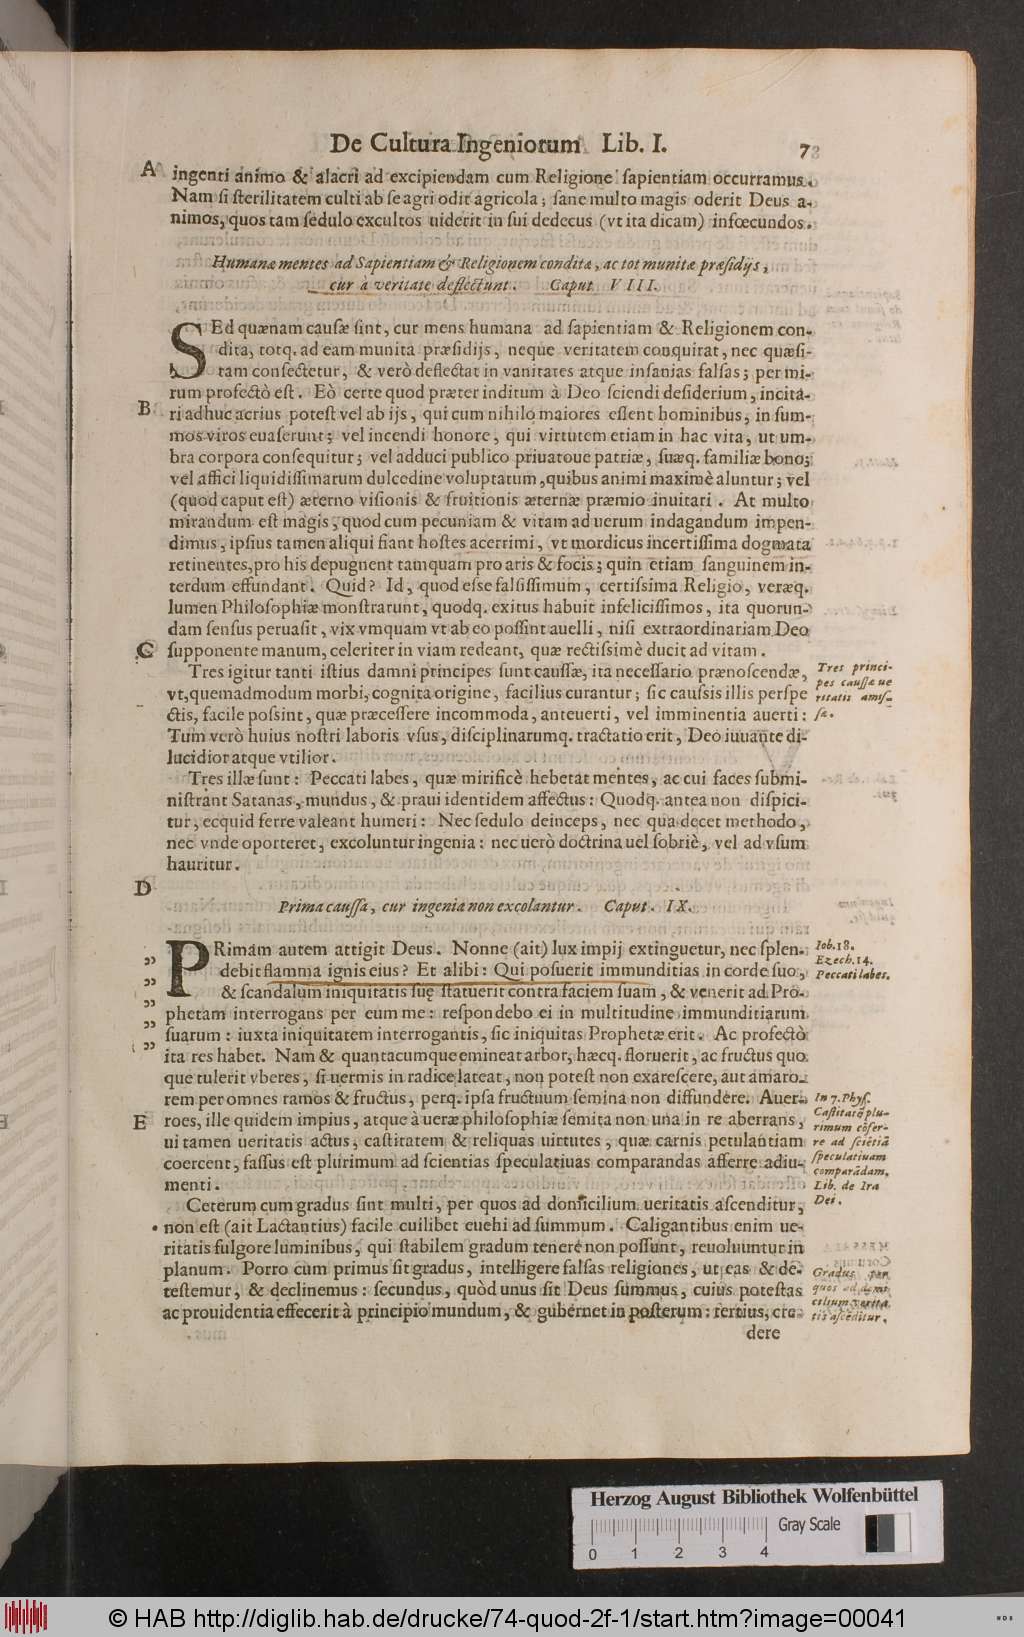 De Cultura Ingeniorum Lib. I. 7
A ingenti animo & alacri ad excipiendam cum Religione sapientiam occurramus.
Nam si sterilitatem culti ab se agri odit agricola; sane multo magis oderit Deus a-
nimos, quos tam sedulo excultos uiderit in sui dedecus (vt ita dicam) infœcundos.
Humanæ mentes ad Sapientiam & Religionem conditæ, ac tot munitæ præsidijs,
cur à veritate deflectunt. Caput VIII.
SEd quænam causæ sint, cur mens humana ad sapientiam & Religionem con-
dita, totq. ad eam munita præsidijs, neque veritatem conquirat, nec quæsi-
tam consectetur, & verò deflectat in vanitates atque insanias falsas; per mi-
rum profectò est. Eò certe quod præter inditum à Deo sciendi desiderium, incita-
B ri adhuc acrius potest vel ab ijs, qui cum nihilo maiores essent hominibus, in sum-
mos viros euaserunt; vel incendi honore, qui virtutem etiam in hac vita, ut um-
bra corpora consequitur; vel adduci publico priuatoue patriæ, suæq. familiæ bono;
vel affici liquidissimarum dulcedine voluptatum, quibus animi maximè aluntur; vel
(quod caput est) æterno visionis & fruitionis æternæ præmio inuitari. At multo
mirandum est magis, quod cum pecuniam & vitam ad uerum indagandum impen-
dimus, ipsius tamen aliqui fiant hostes acerrimi, vt mordicus incertissima dogmata
retinentes, pro his depugnent tamquam pro aris & focis; quin etiam sanguinem in-
terdum effundant. Quid? Id, quod esse falsissimum, certissima Religio, veræq.
lumen Philosophiæ monstrarunt, quodq. exitus habuit infelicissimos, ita quorun-
dam sensus peruasit, vix vmquam vt ab eo possint auelli, nisi extraordinariam Deo
C supponente manum, celeriter in viam redeant, quæ rectissimè ducit ad vitam.
Tres igitur tanti istius damni principes sunt caussæ, ita necessario prænoscendæ,
vt, quemadmodum morbi, cognita origine, facilius curantur; sic caussis illis perspe
ctis, facile possint, quæ præcessere incommoda, anteuerti, vel imminentia auerti:
Tum verò huius nostri laboris vsus, disciplinarumq. tractatio erit, Deo iuuante di-
lucidior atque vtilior.
Tres princi-
pes caussæ ue
ritatis amis-
sæ.
Tres illæ sunt: Peccati labes, quæ mirificè hebetat mentes, ac cui faces submi-
nistrant Satanas, mundus, & praui identidem affectus: Quodq. antea non dispici-
tur, ecquid ferre valeant humeri: Nec sedulo deinceps, nec qua decet methodo,
nec vnde oporteret, excoluntur ingenia: nec uerò doctrina uel sobriè, vel ad vsum
hauritur.
D
Prima caussa, cur ingenia non excolantur. Caput. IX.
PRimam autem attigit Deus. Nonne (ait) lux impij extinguetur, nec splen-
„ debit flamma ignis eius? Et alibi: Qui posuerit immunditias in corde suo,
„ & scandalum iniquitatis suę statuerit contra faciem suam, & venerit ad Pro-
„ phetam interrogans per eum me: respondebo ei in multitudine immunditiarum
„ suarum: iuxta iniquitatem interrogantis, sic iniquitas Prophetæ erit. Ac profectò
„ ita res habet. Nam & quantacumque emineat arbor, hæcq. floruerit, ac fructus quo
que tulerit vberes, si uermis in radice lateat, non potest non exarescere, aut amaro-
rem per omnes ramos & fructus, perq. ipsa fructuum semina non diffundere. Auer-
E roes, ille quidem impius, atque à ueræ philosophiæ semita non una in re aberrans,
ui tamen ueritatis actus, castitatem & reliquas uirtutes, quæ carnis petulantiam
coercent, fassus est plurimum ad scientias speculatiuas comparandas afferre adiu-
menti.
Iob. 18.
Ezech. 14.
Peccati labes.
In 7. Phys.
Castitatẽ plu-
rimum cõfer-
re ad sciẽtiã
speculatiuam
comparãdam.
Lib. de Ira
Dei.
Ceterum cum gradus sint multi, per quos ad domicilium ueritatis ascenditur,
non est (ait Lactantius) facile cuilibet euehi ad summum. Caligantibus enim ue-
ritatis fulgore luminibus, qui stabilem gradum tenere non possunt, reuoluuntur in
planum. Porro cum primus sit gradus, intelligere falsas religiones, ut eas & de-
testemur, & declinemus: secundus, quòd unus sit Deus summus, cuius potestas
ac prouidentia effecerit à principio mundum, & gubernet in posterum: tertius, cre-
dere
Gradus per
quos ad domi
cilium verita
tis ascẽditur.
Herzog August Bibliothek Wolfenbüttel
Gray Scale
0 1 2 3 4
© HAB http://diglib.hab.de/drucke/74-quod-2f-1/start.htm?image=00041